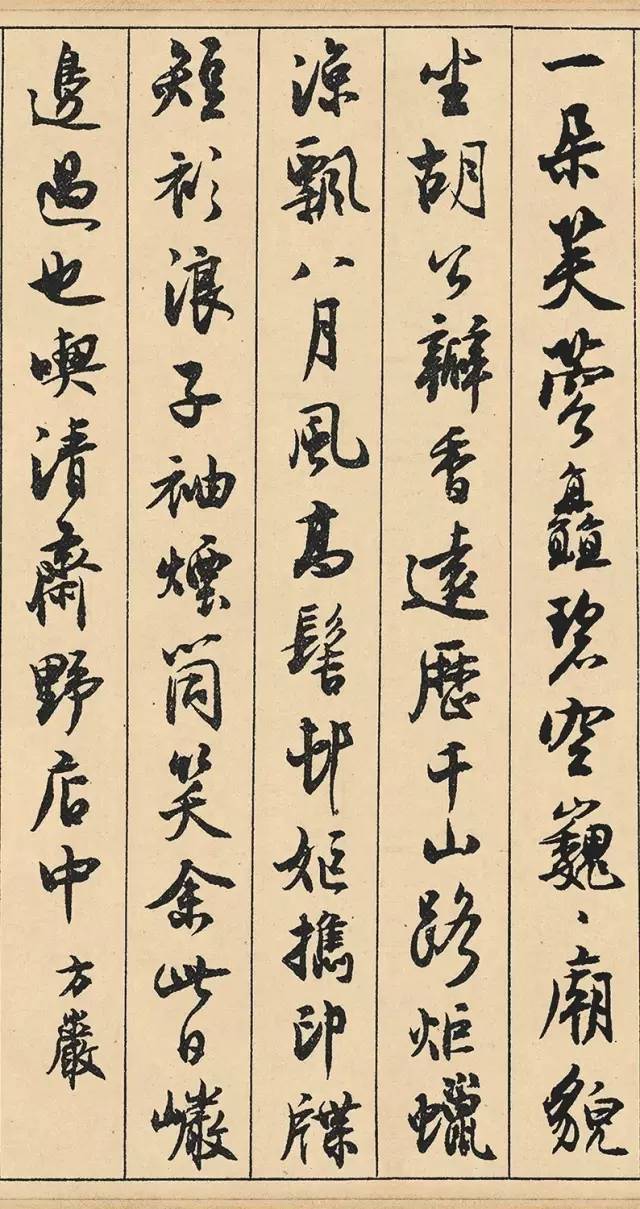 一朵芙蓉矗碧空巍〻廟貌
坐胡公瓣香遠歷千山路炬蠟
涼飄八月風高髻邨姬攜印牒
短衫浪子袖煙筒笑余此日巖
邊過也喫清齋野店中 方巖